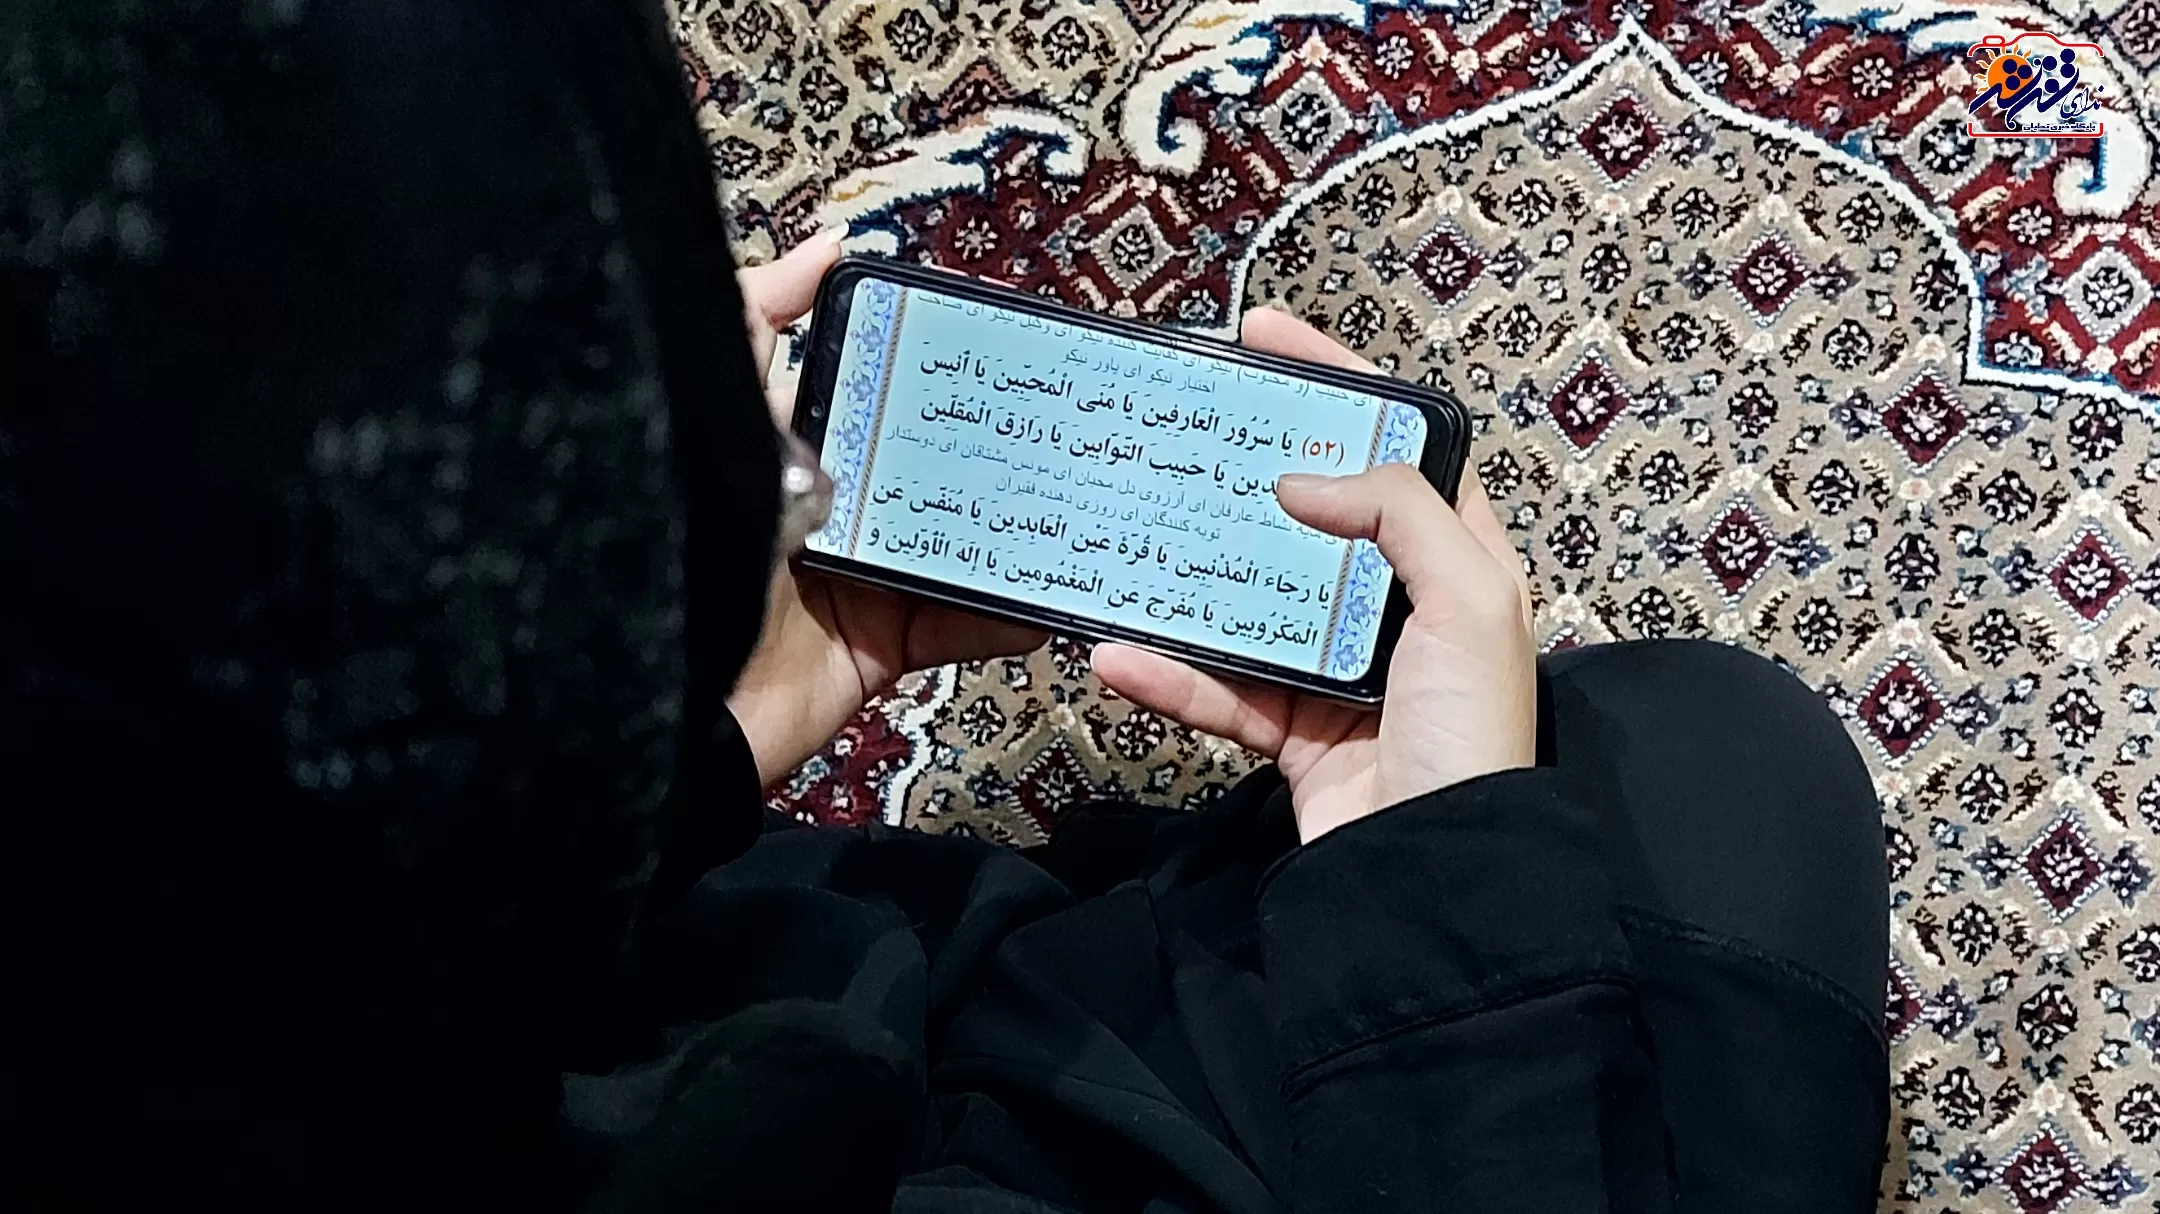 ای حبیب (و محبوب) نیکو ای کفایت کننده نیکو ای وکیل نیکو ای صاحب
اختیار نیکو ای یاور نیکو
(۵۲) یَا سُرُورَ الْعَارِفِینَ یَا مُنَی الْمُحِبِّینَ یَا أَنِیسَ
یدِینَ یَا حَبِیبَ التَّوَّابِینَ یَا رَازِقَ الْمُقِلِّینَ
مایه نشاط عارفان ای آرزوی دل محبان ای مونس مشتاقان ای دوستدار
توبه کنندگان ای روزی دهنده فقیران
یَا رَجَاءَ الْمُذْنِبِینَ یَا قُرَّةَ عَیْنِ الْعَابِدِینَ یَا مُنَفِّسَ عَنِ
الْمَکْرُوبِینَ یَا مُفَرِّجَ عَنِ الْمَغْمُومِینَ یَا إِلَهَ الْأَوَّلِینَ وَ
ندای
پایگاه خبری تحلیلی